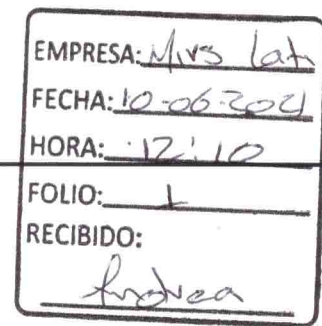 EMPRESA: Mivs Lat
FECHA: 10-06-2021
HORA: 12:10
FOLIO: 1
RECIBIDO:
Andrea